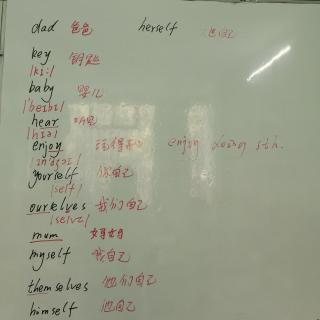 dad 爸爸 herself 她自己
key 钥匙
/ki:/
baby 婴儿
/'beɪbɪ/
hear 听见
/hɪə/
enjoy enjoy doing sth.
/ɪn'dʒɔɪ/
yourself 你自己
/self/
ourselves 我们自己
/selvz/
mum 妈妈
myself 我自己
themselves 他们自己
himself 他自己